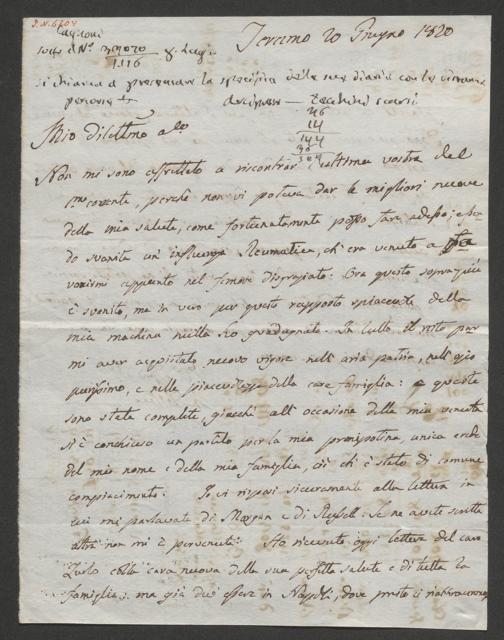 Teramo 20 Giugno 1820
si chiama a presentare la specifica delle sue diarie con le
26
14
144
36
Mio dilettmo aco
Non mi sono affrettato a riscontrar l'ultima vostra del
corrente, perchè non vi poteva dar le migliori nuove
della mia salute, come fortunatamente posso fare adesso, essen
do svanita un' influenza Reumatica, ch'era venuta a
appunto nel femore disgraziato: Ora questo soprappiù
è svanito, ma in vero per questo rapporto spiacente della
mia machina nulla ho guadagnato. In tutto il resto par
mi aver acquistato nuovo vigore nell' aria patria, nell'
purissimo, e nelle piacevolezze della cara famiglia: e queste
sono state complete, giacchè all' occasione della mia venuta
si è conchiuso un partito per la mia pronipotina, unica erede
del mio nome e della mia famiglia, ciò ch'è stato di comune
compiacimento. Io vi risposi sicuramente alla lettera in
cui mi parlavate di Morgan e di Russell. Se ne avete scritta
altra non mi è pervenuta. Ho ricevuto oggi lettera del caro
Zurlo colla cara nuova della sua perfetta salute e di tutta la
famiglia: ma già due essere in Napoli, dove presto ci riabbracceremo